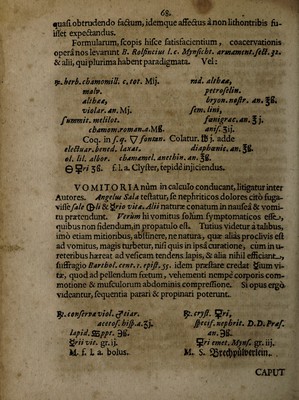 68.
quasi obtrudendo factum, idemque affectus à non lithontribis fu-
isset expectandus.
Formularum, scopis hisce satisfacientium, coacervationis
operâ nos levarunt B. Rolfincius l.c. Mynsicht. armament. sect. 31.
& alii, qui plurima habent paradigmata. Vel:
℞. herb. chamomill. c. tot. Mij.
malv.
althaeae,
violar. an. Mj.
summit. melilot.
chamom. roman. a. Mß.
rad. althaeae,
petroselin.
bryon. nostr. an. ℥ß.
sem. lini,
fœnigrac. an. ℥j.
anis. ʒij.
Coq. in s. q. ▽ fontan. Colatur. ℔j. adde
electuar. bened. laxat. diaphœnic. an. ℥ß.
ol. lil. albor. chamæmel. anethin. an. ℥ß.
f. l. a. Clyster, tepidè injiciendus.
VOMITORIA nùm in calculo conducant, litigatur inter
Autores. Angelus Sala testatur, se nephriticos dolores citò fuga-
visse sale vitæ. Alii naturæ conatum in nauseâ & vomi-
tu prætendunt. Verùm hi vomitus solùm symptomaticos esse,
quibus non fidendum, in propatulo est. Tutius videtur à talibus,
imò etiam mitioribus, abstinere, ne natura, quæ aliàs proclivis est
ad vomitus, magis turbetur, nisi quis in ipsâ curatione, cum in u-
reteribus hæreat ad vesicam tendens lapis, & alia nihil efficiant,
suffragio Barthol. cent. 1. epist. 55. idem præstare credat usum vi-
tæ, quod ad pellendum fœtum, vehementi nempè corporis com-
motione & musculorum abdominis compressione. Si opus ergò
videantur, sequentia parari & propinari poterunt.
℞. conserva viol. martiar.
acetos. hisp. a. ʒj.
lapid. ppt.
vit. gr. ij.
M. f. l. a. bolus.
℞. cryst.
specif. nephrit. D. D. Præs.
an. ℈ß.
emet. Myns. gr. iij.
M. S. Brechpülverlein.
CAPUT